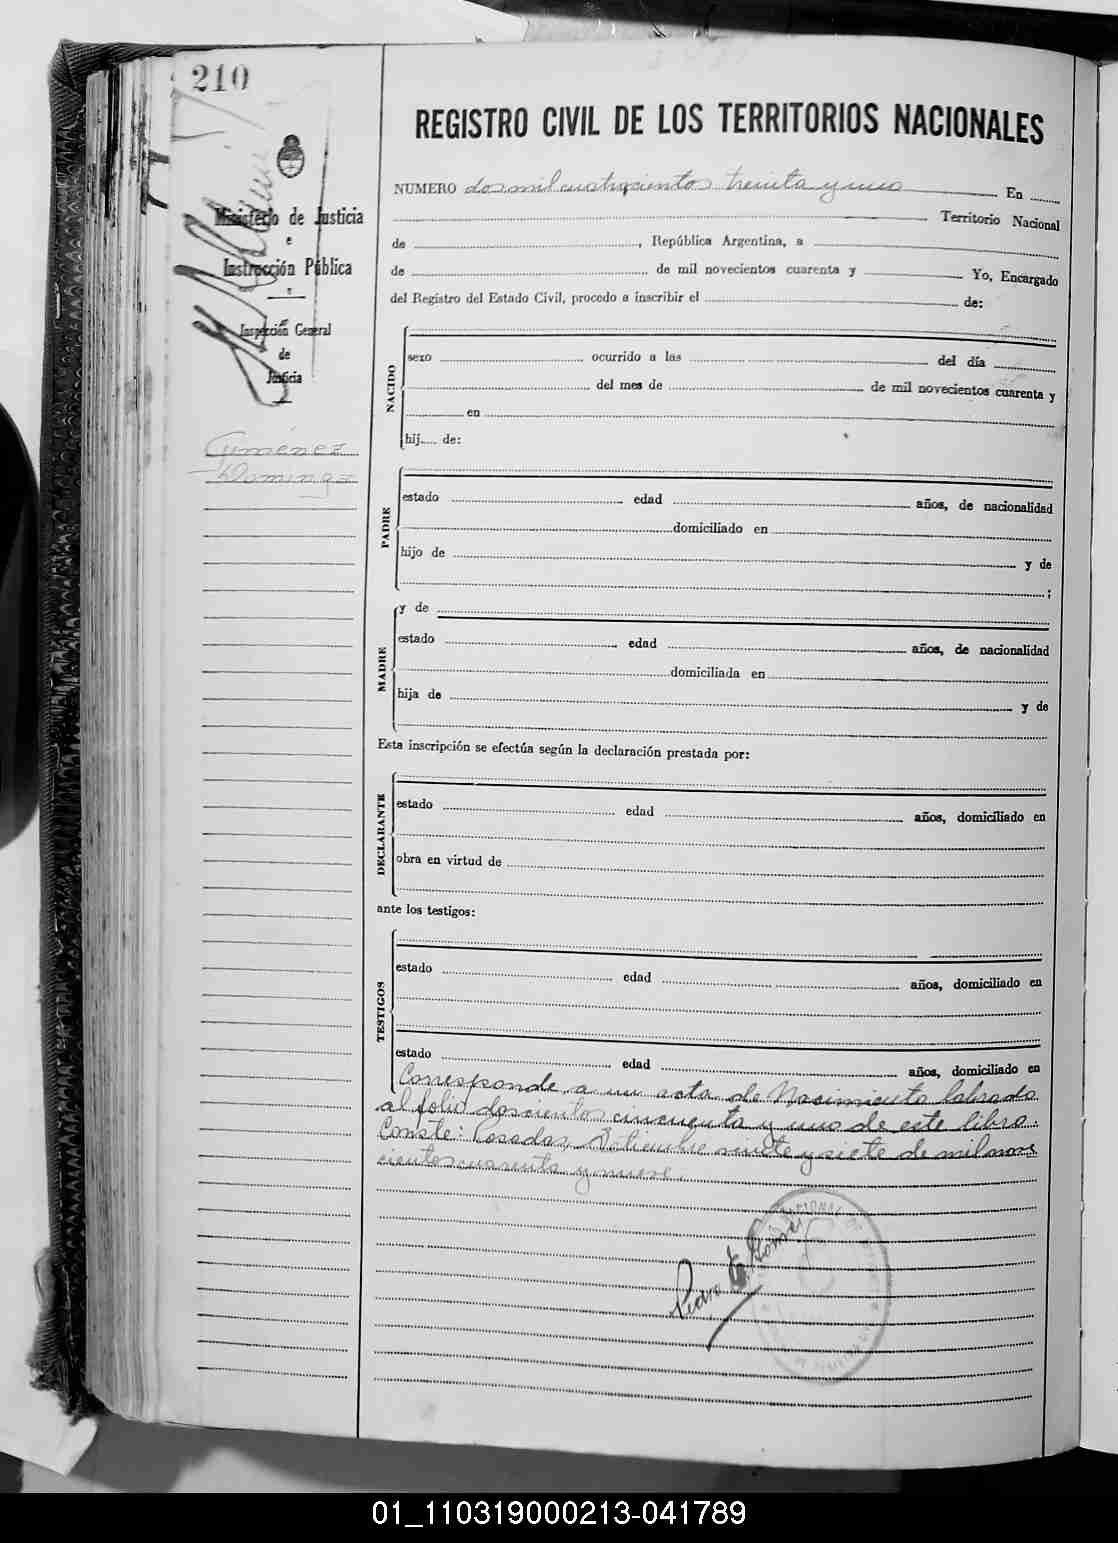 210
REGISTRO CIVIL DE LOS TERRITORIOS NACIONALES
Ministerio de Justicia
e
Instrucción Pública
Inspección General
de
Justicia
Gimenez
Domingo
NUMERO dos mil cuatrocientos treinta y uno En
Territorio Nacional
de , República Argentina, a
de de mil novecientos cuarenta y Yo, Encargado
del Registro del Estado Civil, procedo a inscribir el de:
NACIDO
sexo ocurrido a las del día
del mes de de mil novecientos cuarenta y
en
hij.... de:
PADRE
estado edad años, de nacionalidad
domiciliado en
hijo de y de
;
MADRE
y de
estado edad años, de nacionalidad
domiciliada en
hija de y de
Esta inscripción se efectúa según la declaración prestada por:
DECLARANTE
estado edad años, domiciliado en
obra en virtud de
ante los testigos:
TESTIGOS
estado edad años, domiciliado en
estado edad años, domiciliado en
Corresponde a un acta de Nacimiento labrada
al folio doscientos cincuenta y uno de este libro.
Conste: Posadas, Setiembre veinte y siete de mil nove
cientos cuarenta y nueve.
Pedro Gomez
01_110319000213-041789